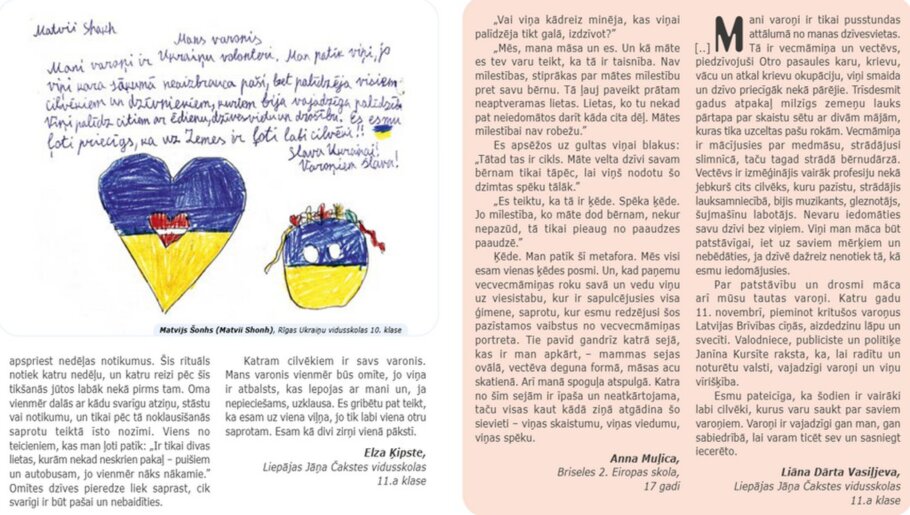 Matvii Shonh
Mans varonis
Mani varoņi ir Ukraiņu volonteri. Man patīk viņi, jo
viņi kara sākumā neaizbrauca paši, bet palīdzēja visiem
cilvēkiem un dzīvniekiem, kuriem bija vajadzīga palīdzība
Viņi palīdz citiem ar ēdienu, dzīves vidi un drošību. Es esmu
ļoti priecīgs, ka uz Zemes ir ļoti labi cilvēki!!
Slava Ukrainai!
Varoņiem slava!
Matvijs Šonhs (Matvii Shonh), Rīgas Ukraiņu vidusskolas 10. klase
apspriest nedēļas notikumus. Šis rituāls
notiek katru nedēļu, un katru reizi pēc šīs
tikšanās jūtos labāk nekā pirms tam. Oma
vienmēr dalās ar kādu svarīgu atziņu, stāstu
vai notikumu, un tikai pēc tā noklausīšanās
saprotu teiktā īsto nozīmi. Viens no
teicieniem, kas man ļoti patīk: „Ir tikai divas
lietas, kurām nekad neskrien pakaļ – puišiem
un autobusam, jo vienmēr nāks nākamie.”
Omītes dzīves pieredze liek saprast, cik
svarīgi ir būt pašai un nebaidīties.
Katram cilvēkiem ir savs varonis.
Mans varonis vienmēr būs omīte, jo viņa
ir atbalsts, kas lepojas ar mani un, ja
nepieciešams, uzklausa. Es gribētu pat teikt,
ka esam uz viena viļņa, jo tik labi viena otru
saprotam. Esam kā divi zirņi vienā pākstī.
Elza Ķipste,
Liepājas Jāņa Čakstes vidusskolas
11.a klase
„Vai viņa kādreiz minēja, kas viņai
palīdzēja tikt galā, izdzīvot?”
„Mēs, mana māsa un es. Un kā māte
es tev varu teikt, ka tā ir taisnība. Nav
mīlestības, stiprākas par mātes mīlestību
pret savu bērnu. Tā ļauj paveikt prātam
neaptveramas lietas. Lietas, ko tu nekad
pat neiedomātos darīt kāda cita dēļ. Mātes
mīlestībai nav robežu.”
Es apsēžos uz gultas viņai blakus:
„Tātad tas ir cikls. Māte velta dzīvi savam
bērnam tikai tāpēc, lai viņš nodotu šo
dzimtas spēku tālāk.”
„Es teiktu, ka tā ir ķēde. Spēka ķēde.
Jo mīlestība, ko māte dod bērnam, nekur
nepazūd, tā tikai pieaug no paaudzes
paaudzē.”
Ķēde. Man patīk šī metafora. Mēs visi
esam vienas ķēdes posmi. Un, kad paņemu
vecvecmāmiņas roku savā un vedu viņu
uz viesistabu, kur ir sapulcējusies visa
ģimene, saprotu, kur esmu redzējusi šos
pazīstamos vaibstus no vecvecmāmiņas
portreta. Tie pavīd gandrīz katrā sejā,
kas ir man apkārt, – mammas sejas
ovālā, vectēva deguna formā, māsas acu
skatienā. Arī manā spoguļa atspulgā. Katra
no šīm sejām ir īpaša un neatkārtojama,
taču visas kaut kādā ziņā atgādina šo
sievieti – viņas skaistumu, viņas viedumu,
viņas spēku.
Anna Muļica,
Briseles 2. Eiropas skola,
17 gadi
Mani varoņi ir tikai pusstundas
attālumā no manas dzīvesvietas.
[..] Tā ir vecmāmiņa un vectēvs,
piedzīvojuši Otro pasaules karu, krievu,
vācu un atkal krievu okupāciju, viņi smaida
un dzīvo priecīgāk nekā pārējie. Trīsdesmit
gadus atpakaļ milzīgs zemeņu lauks
pārtapa par skaistu sētu ar divām mājām,
kuras tika uzceltas pašu rokām. Vecmāmiņa
ir mācījusies par medmāsu, strādājusi
slimnīcā, taču tagad strādā bērnudārzā.
Vectēvs ir izmēģinājis vairāk profesiju nekā
jebkurš cits cilvēks, kuru pazīstu, strādājis
lauksamniecībā, bijis muzikants, gleznotājs,
šujmašīnu labotājs. Nevaru iedomāties
savu dzīvi bez viņiem. Viņi man māca būt
patstāvīgai, iet uz saviem mērķiem un
nebēdāties, ja dzīvē dažreiz nenotiek tā, kā
esmu iedomājusies.
Par patstāvību un drosmi māca
arī mūsu tautas varoņi. Katru gadu
11. novembrī, pieminot kritušos varoņus
Latvijas Brīvības cīņās, aizdedzinu lāpu un
svecīti. Valodniece, publiciste un politiķe
Janīna Kursīte raksta, ka, lai radītu un
noturētu valsti, vajadzīgi varoņi un viņu
virišķība.
Esmu pateicīga, ka šodien ir vairāki
labi cilvēki, kurus varu saukt par saviem
varoņiem. Varoņi ir vajadzīgi gan man, gan
sabiedrībai, lai varam ticēt sev un sasniegt
iecerēto.
Liāna Dārta Vasiļjeva,
Liepājas Jāņa Čakstes vidusskolas
11.a klase